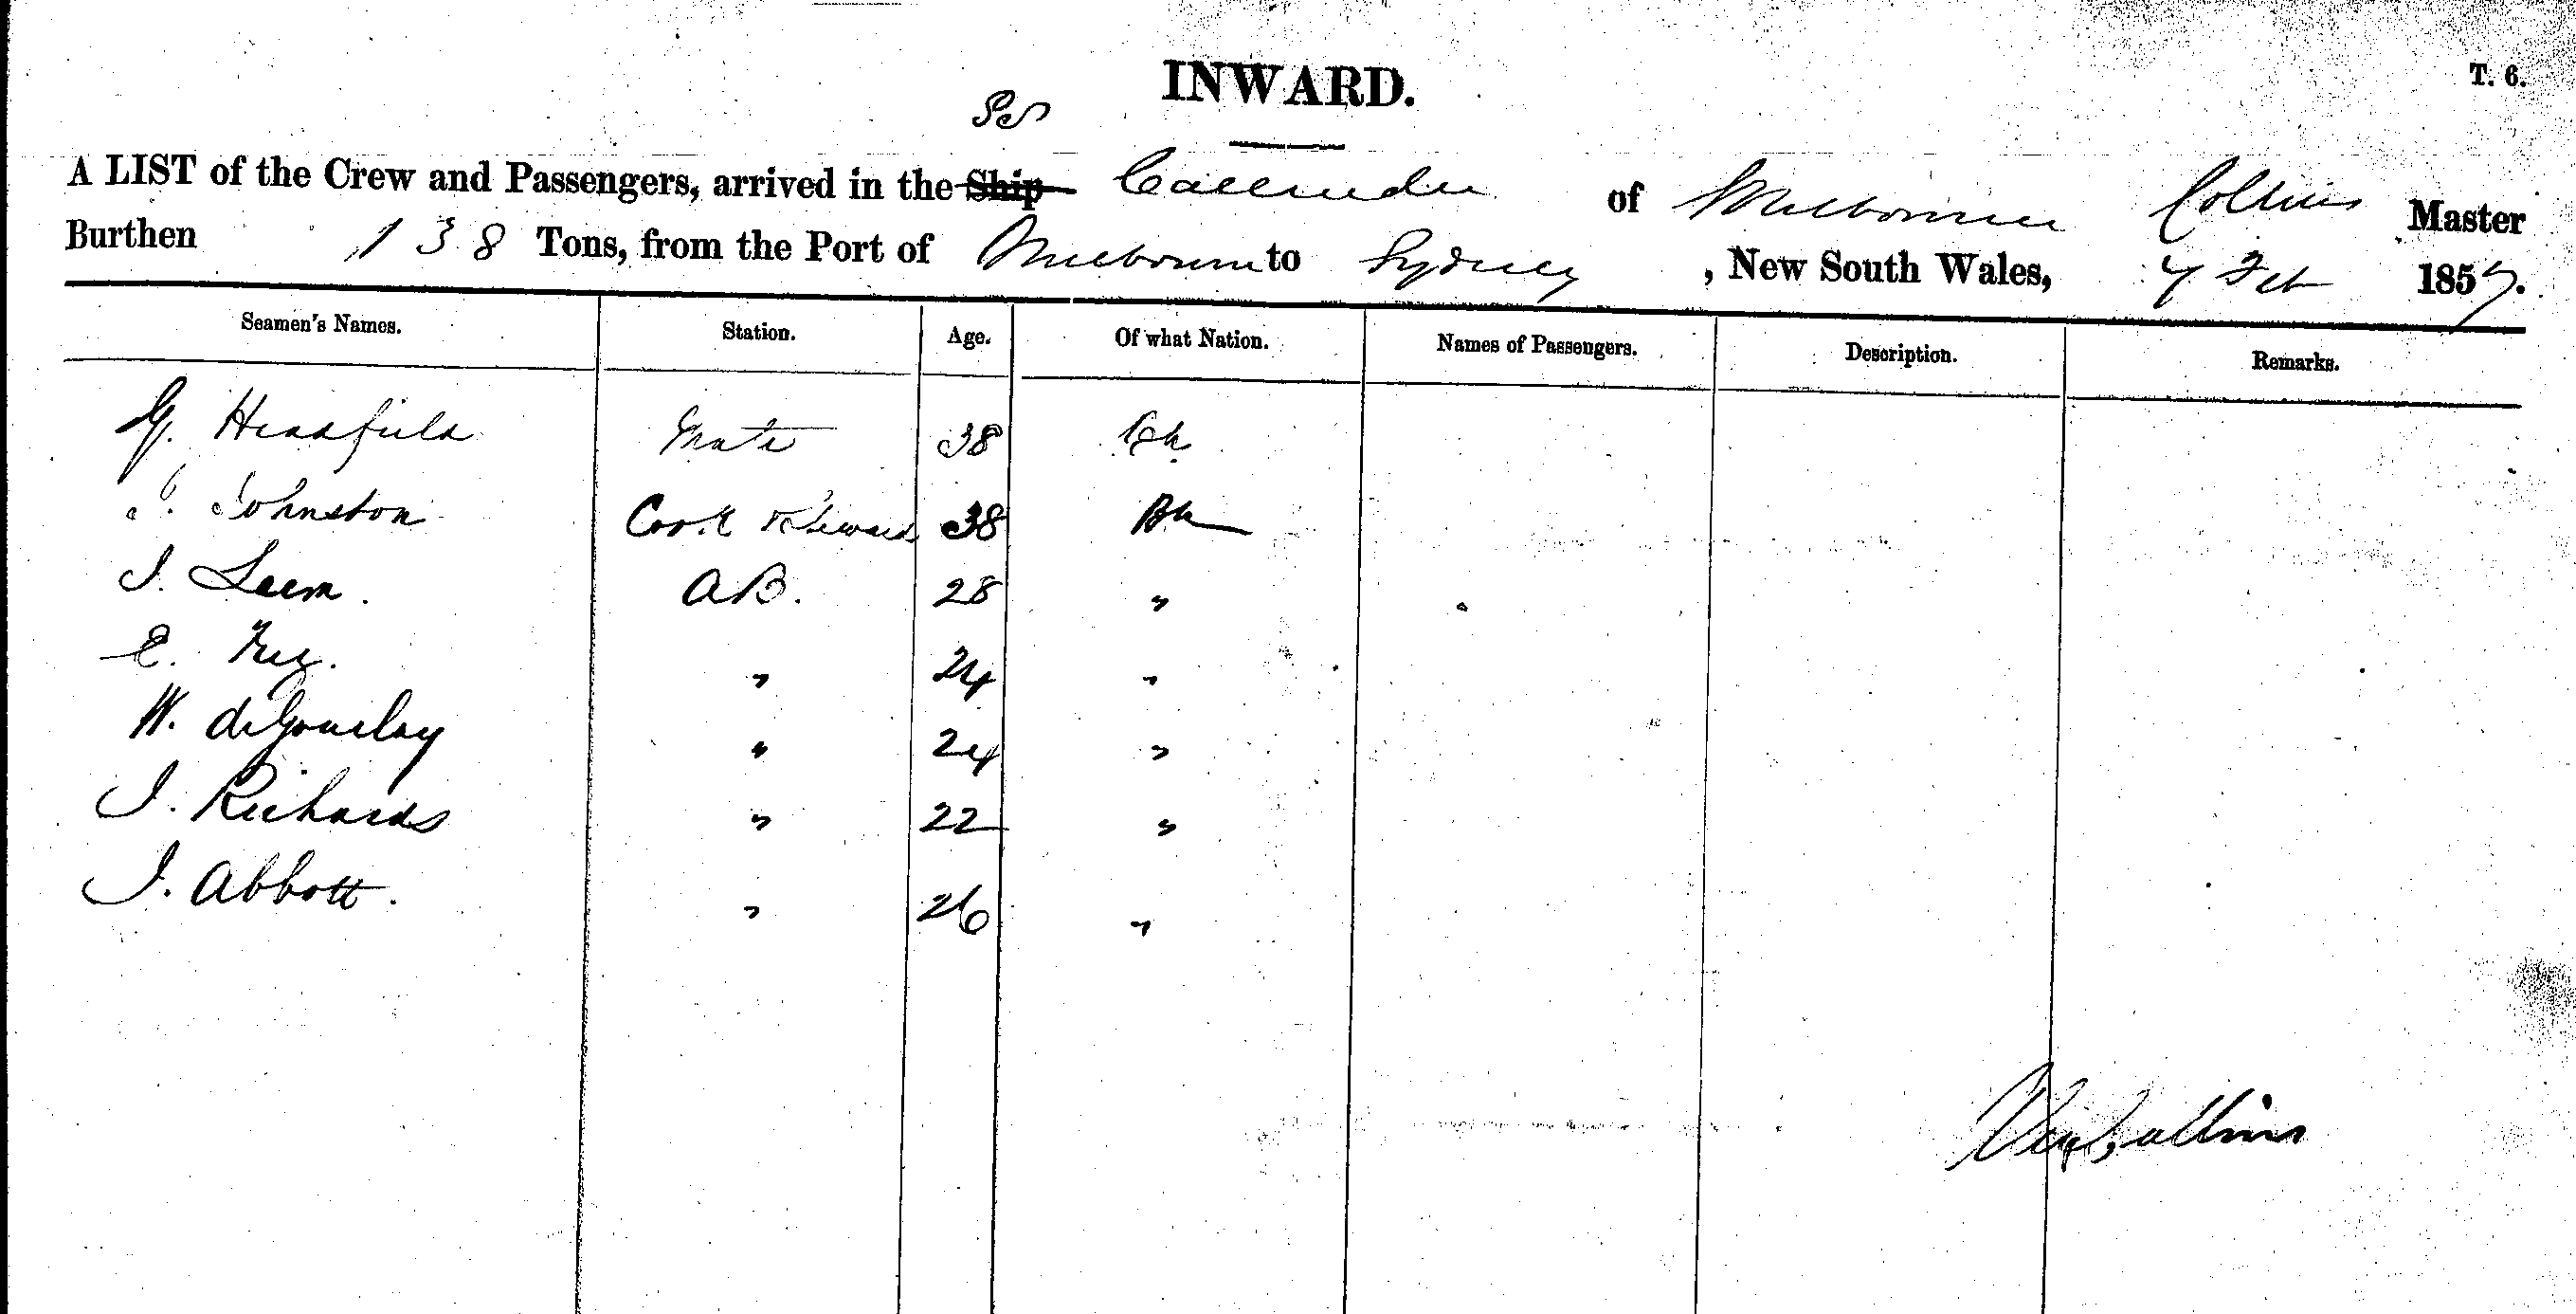 INWARD.
T. 6.
Sc
A LIST of the Crew and Passengers, arrived in the Ship Callender of Melbourne Collins Master
Burthen 138 Tons, from the Port of Melbourne to Sydney, New South Wales, 7 Feb 1857.
Seamen's Names. Station. Age. Of what Nation. Names of Passengers. Description. Remarks.
G. Headfield Mate 38
Johnston Cook & Steward 38 Bh
J. A B. 28 "
E. " 24 "
W. deGourlay " 24 "
J. Richards " 22 "
J. Abbott. " 26 "
Collins